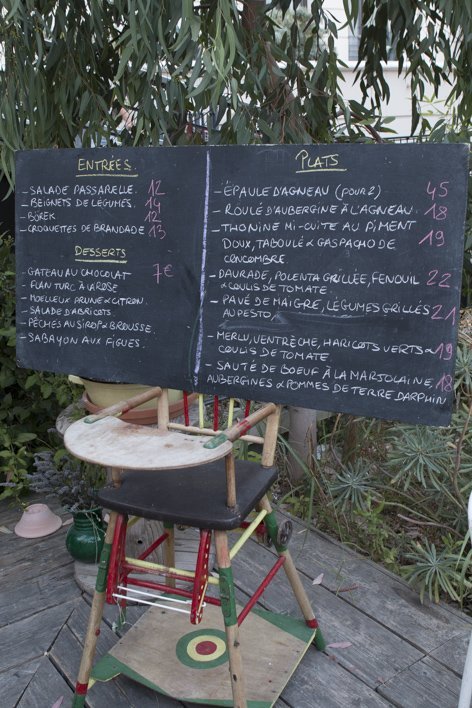 ENTRÉES.
- SALADE PASSARELLE. 12
- BEIGNETS DE LÉGUMES. 14
- BÖREK 12
- CROQUETTES DE BRANDADE 13
DESSERTS
- GATEAU AU CHOCOLAT 7€
FLAN TURC À LA ROSE
- MOELLEUX PRUNE & CITRON.
- SALADE D'ABRICOTS.
- PÊCHES AU SIROP & BROUSSE.
- SABAYON AUX FIGUES.
PLATS
- ÉPAULE D'AGNEAU (POUR 2) 45
- ROULÉ D'AUBERGINE À L'AGNEAU. 18
- THONINE MI-CUITE AU PIMENT
DOUX, TABOULÉ & GASPACHO DE 19
CONCOMBRE.
- DAURADE, POLENTA GRILLÉE, FENOUIL 22
& COULIS DE TOMATE.
- PAVÉ DE MAIGRE, LÉGUMES GRILLÉS 21
AU PESTO.
- MERLU, VENTRÈCHE, HARICOTS VERTS & 19
COULIS DE TOMATE
- SAUTÉ DE BOEUF À LA MARJOLAINE 18
AUBERGINES & POMMES DE TERRE DARPHIN